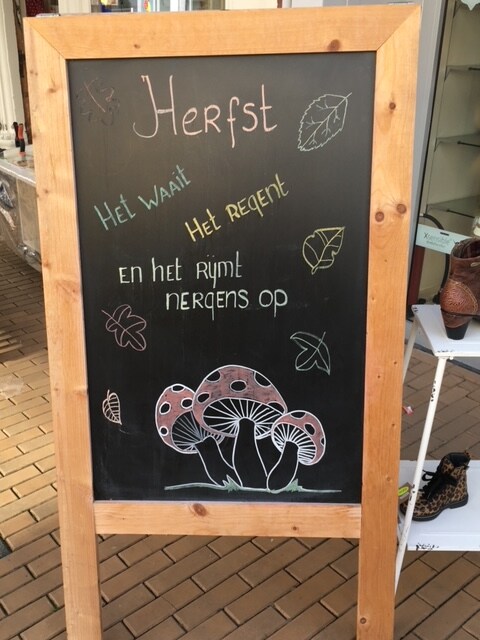 Herfst
Het waait
Het regent
en het rijmt
nergens op